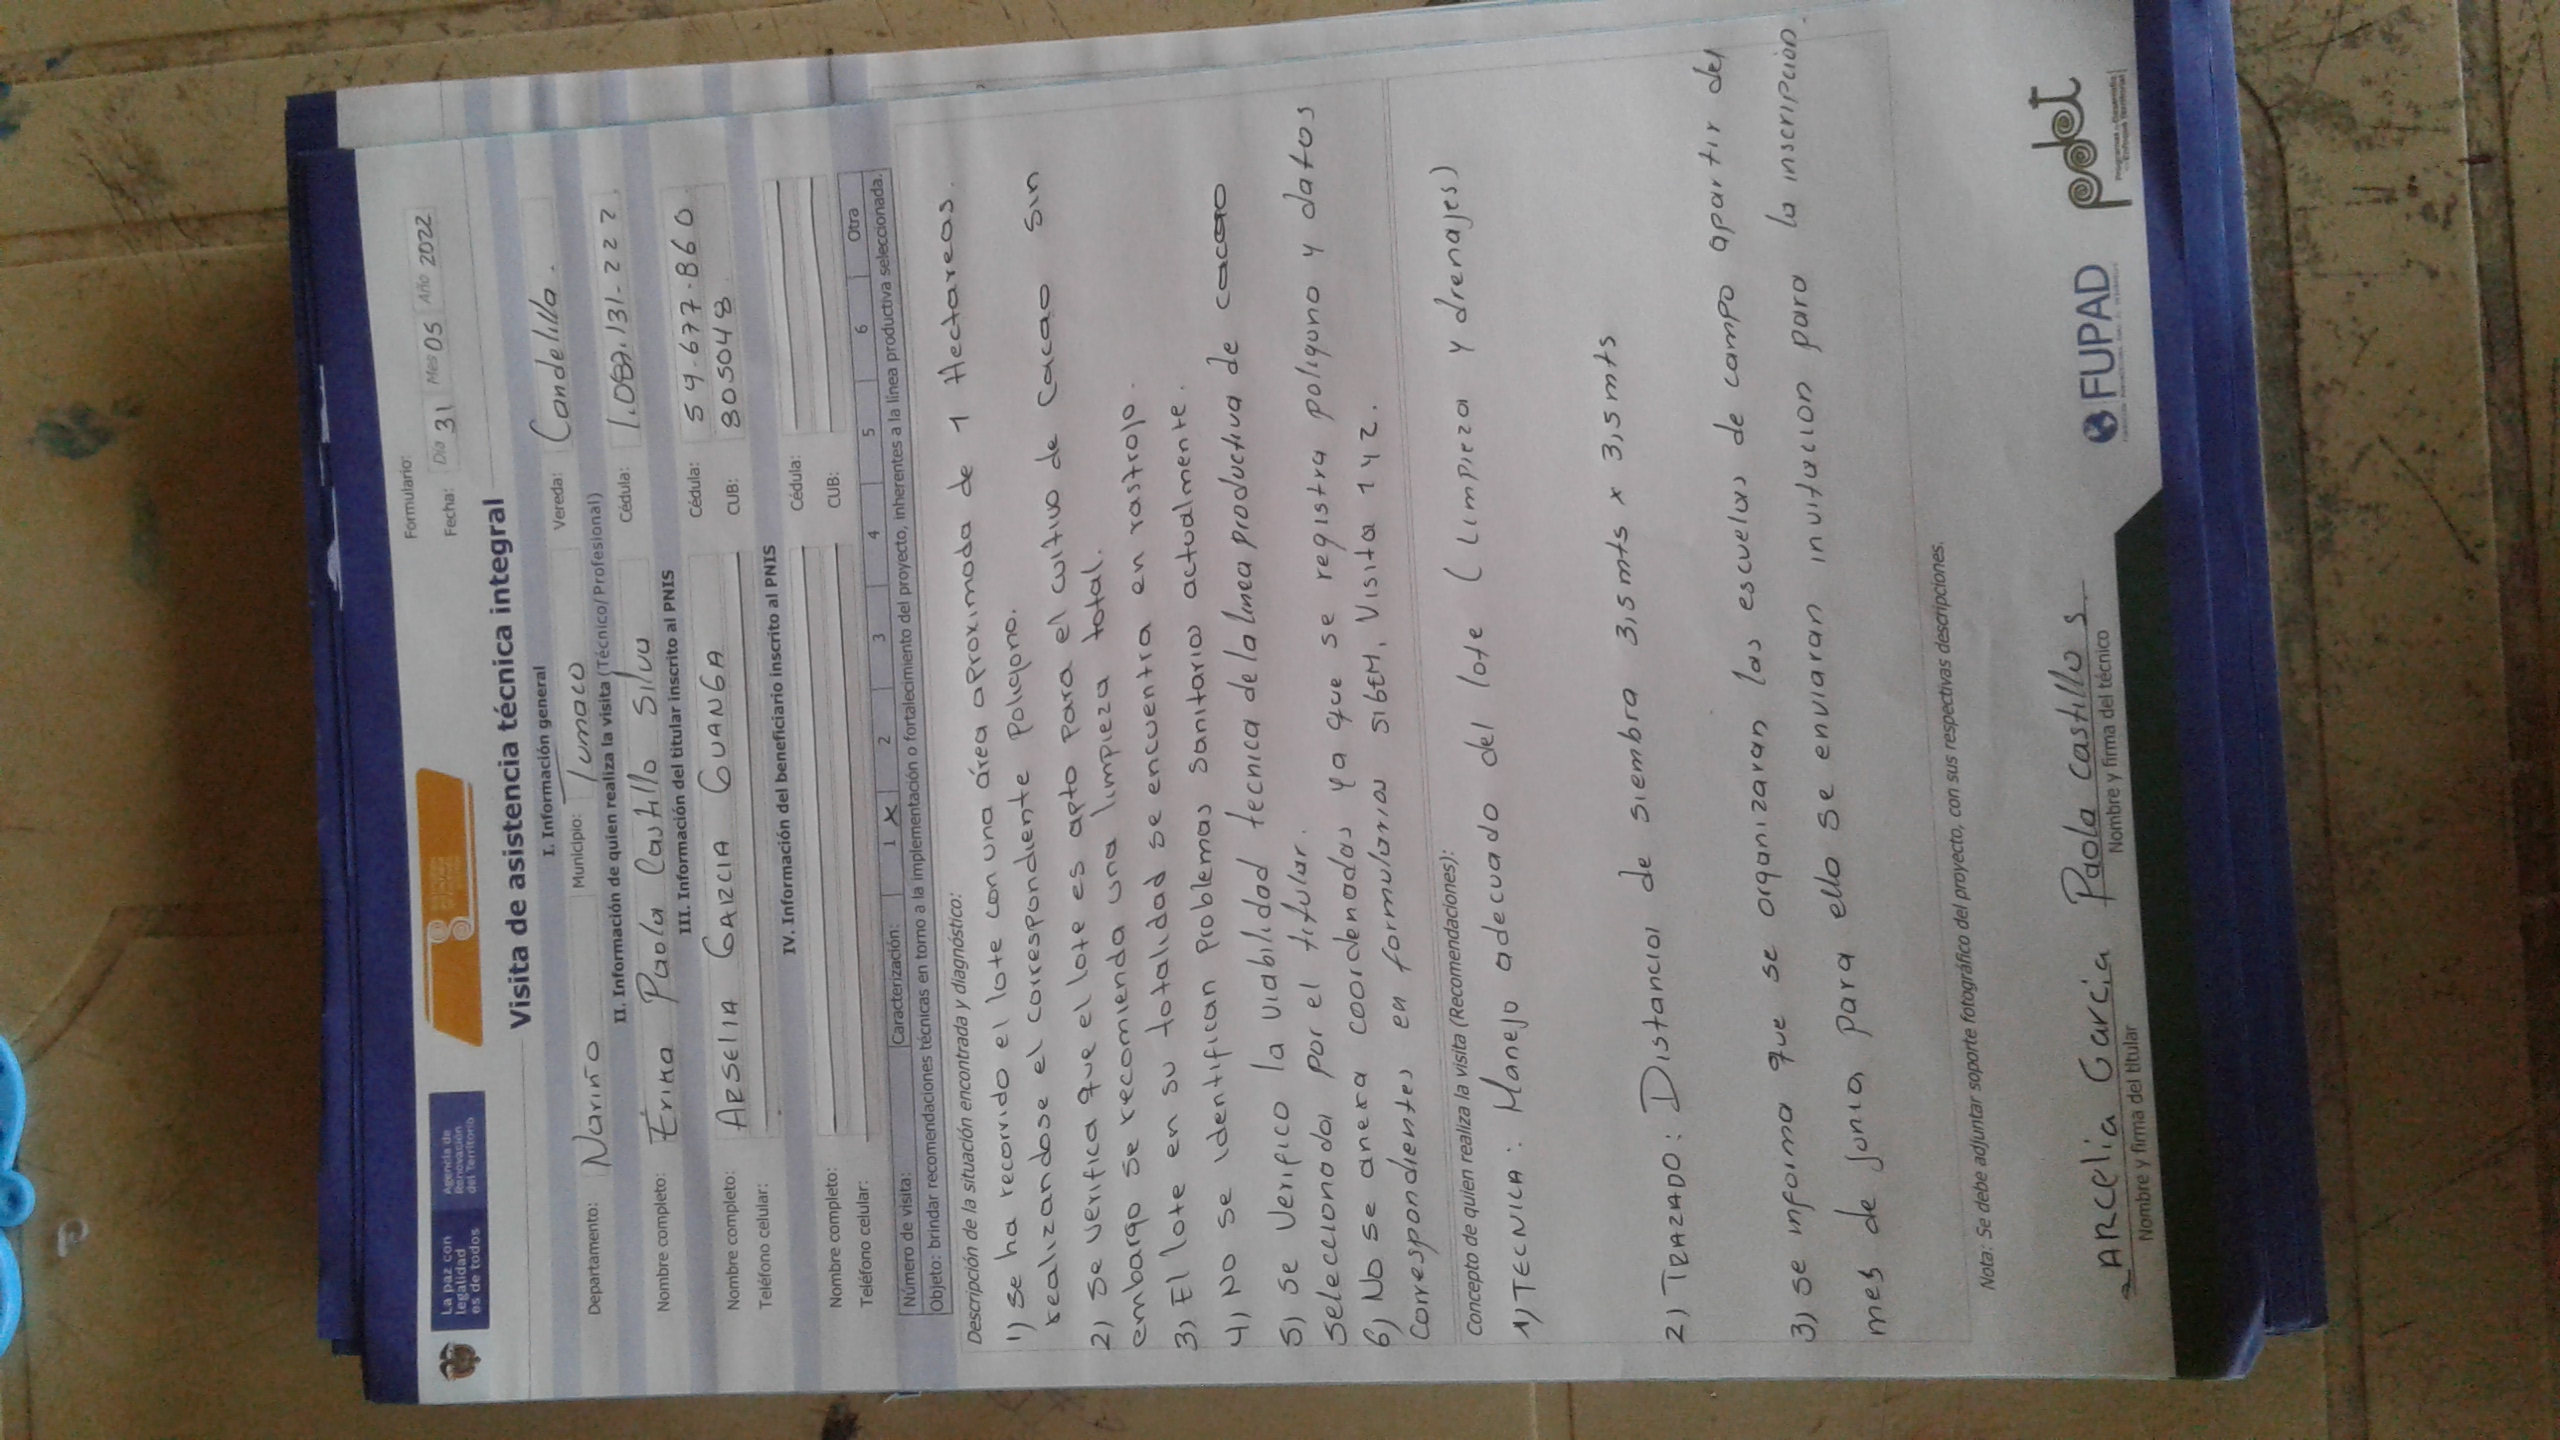 La paz con
legalidad
es de todos
Agencia de
Renovación
del Territorio
Formulario:
Fecha: Día 31 Mes 05 Año 2022
Visita de asistencia técnica integral
I. Información general
Departamento: Nariño Municipio: Tumaco Vereda: Candelilla.
II. Información de quien realiza la visita (Técnico/Profesional)
Nombre completo: Erika Paola Castillo Silva Cédula: 1.087.131-222
III. Información del titular inscrito al PNIS
Nombre completo: ARSELIA GARCIA GUANGA Cédula: 59-677-860
Teléfono celular: CUB: 805048
IV. Información del beneficiario inscrito al PNIS
Nombre completo: Cédula:
Teléfono celular: CUB:
Número de visita: Caracterización: 1 X 2 3 4 5 6 Otra
Objeto: brindar recomendaciones técnicas en torno a la implementación o fortalecimiento del proyecto, inherentes a la línea productiva seleccionada.
Descripción de la situación encontrada y diagnóstico:
1) se ha recorrido el lote con una área aproximada de 1 Hectareas.
realizandose el correspondiente Poligono.
2) se verifica que el lote es apto para el cultivo de cacao sin
embargo se recomienda una limpieza total.
3) El lote en su totalidad se encuentra en rastrojo.
4) No se identifican problemas sanitarios actualmente.
5) se verifico la viabilidad tecnica de la linea productiva de cacao
seleccionada por el titular.
6) No se anexa coordenadas ya que se registra poligono y datos
correspondientes en formularios SIGEM, Visita 1 y 2.
Concepto de quien realiza la visita (Recomendaciones):
1) TECNICA: Manejo adecuado del lote (Limpieza y drenajes)
2) TRAZADO: Distancia de siembra 3,5 mts x 3,5 mts
3) se informa que se organizaran las escuelas de campo apartir del
mes de Junio, para ello se enviaran invitacion para la inscripcion.
Nota: Se debe adjuntar soporte fotográfico del proyecto, con sus respectivas descripciones.
ARCelia Garcia
Nombre y firma del titular
Paola Castillo S
Nombre y firma del técnico
FUPAD
pdet
Programas de Desarrollo
con Enfoque Territorial